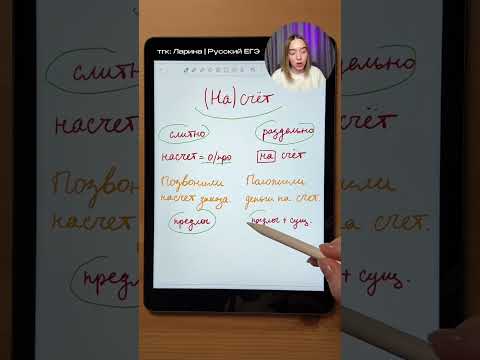 тгк: Ларина | Русский ЕГЭ
(На) счёт
слитно раздельно
насчет = о/про на счёт
Позвонили насчет заказа.
Положили деньги на счет.
предлог
предлог + сущ.